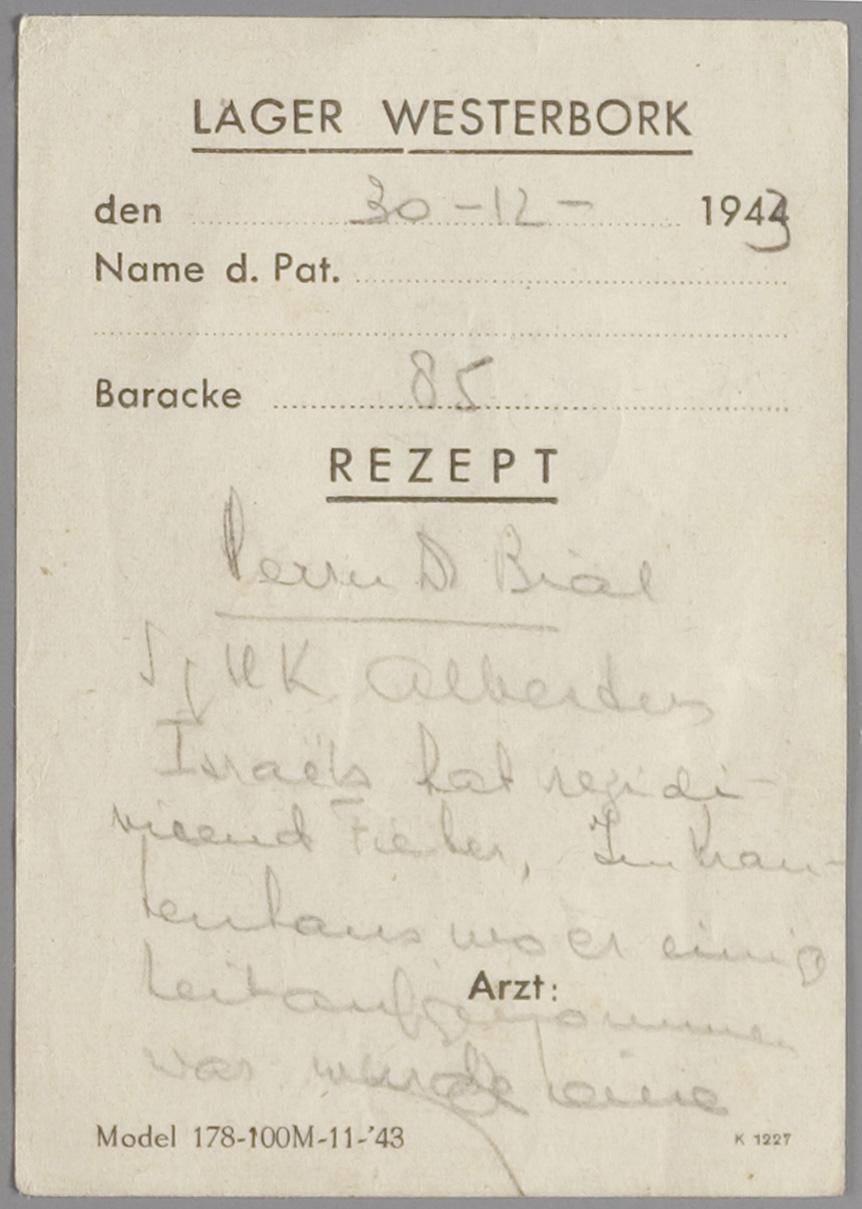 LAGER WESTERBORK
den 30-12- 1943
Name d. Pat.
Baracke 85
REZEPT
Herrn Dr Bial
Albertus
Israëls hat rezidi-
vierend Fieber, Im Kran-
kenhaus wo er einig
Zeit aufgenommen
Arzt:
war wurde eine
Model 178-100M-11-'43
K 1227